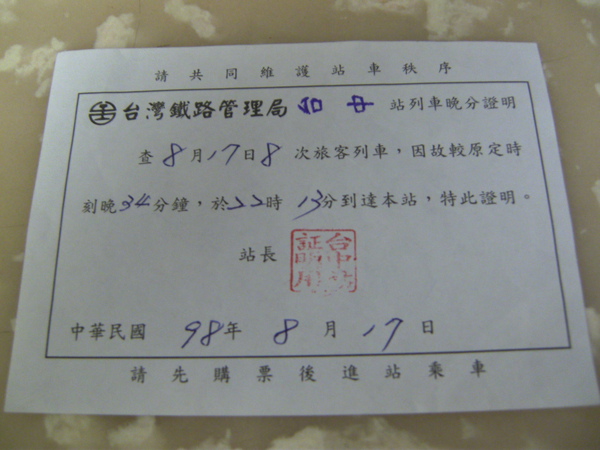 請共同維護站車秩序
台灣鐵路管理局 台中 站列車晚分證明
查8月17日8次旅客列車，因故較原定時
刻晚34分鐘，於22時13分到達本站，特此證明。
站長
台中站証明用
中華民國 98年 8月 17日
請先購票後進站乘車